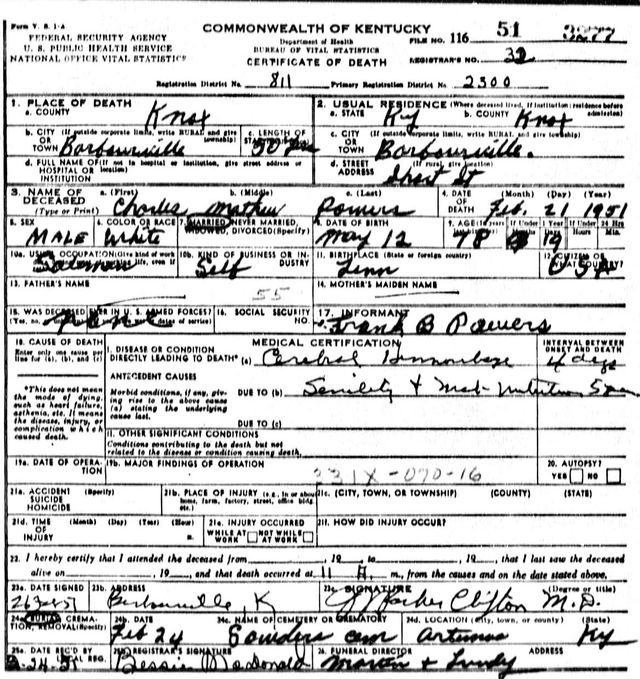 Form V. S. 1-A
FEDERAL SECURITY AGENCY
U. S. PUBLIC HEALTH SERVICE
NATIONAL OFFICE VITAL STATISTICS
COMMONWEALTH OF KENTUCKY
Department of Health
BUREAU OF VITAL STATISTICS
CERTIFICATE OF DEATH
FILE NO. 116 51 3277
REGISTRAR'S NO. 32
Registration District No. 811 Primary Registration District No. 2300
1. PLACE OF DEATH
a. COUNTY Knox
2. USUAL RESIDENCE (Where deceased lived, If institution: residence before admission)
a. STATE Ky b. COUNTY Knox
b. CITY (If outside corporate limits, write RURAL and give township)
OR TOWN Barbourville
c. LENGTH OF 50 Years
c. CITY (If outside corporate limits, write RURAL and give township)
OR TOWN Barbourville.
d. FULL NAME OF (If not in hospital or institution, give street address or location)
HOSPITAL OR INSTITUTION
d. STREET ADDRESS (If rural, give location)
Short St
3. NAME OF DECEASED (Type or Print)
a. (First) Charles b. (Middle) Mathew c. (Last) Powers
4. DATE OF DEATH (Month) (Day) (Year) Feb. 21 1951
5. SEX MALE
6. COLOR OR RACE White
7. MARRIED, NEVER MARRIED, WIDOWED, DIVORCED (Specify)
8. DATE OF BIRTH May 12
9. AGE 78 19
If Under 1 Year If Under 24 Hrs
Hours Min.
10a. USUAL OCCUPATION (Give kind of work life, even if Salesman
10b. KIND OF BUSINESS OR INDUSTRY Self
11. BIRTHPLACE (State or foreign country) Tenn
12. CITIZEN OF WHAT COUNTRY? U S A
13. FATHER'S NAME
55
14. MOTHER'S MAIDEN NAME
15. WAS DECEASED EVER IN U. S. ARMED FORCES?
16. SOCIAL SECURITY NO.
17. INFORMANT
Frank B Powers
18. CAUSE OF DEATH
Enter only one cause per line for (a), (b), and (c)
MEDICAL CERTIFICATION
INTERVAL BETWEEN ONSET AND DEATH
I. DISEASE OR CONDITION DIRECTLY LEADING TO DEATH* (a) Cerebral Hemorrhage 4 days
*This does not mean the mode of dying, such as heart failure, asthenia, etc. It means the disease, injury, or complication which caused death.
ANTECEDENT CAUSES
Morbid conditions, if any, giving rise to the above cause (a) stating the underlying cause last.
DUE TO (b) Senility &
DUE TO (c)
II. OTHER SIGNIFICANT CONDITIONS
Conditions contributing to the death but not related to the disease or condition causing death.
19a. DATE OF OPERATION
19b. MAJOR FINDINGS OF OPERATION
331X-070-16
20. AUTOPSY?
YES NO
21a. ACCIDENT SUICIDE HOMICIDE (Specify)
21b. PLACE OF INJURY (e.g., in or about home, farm, factory, street, office bldg. etc.)
21c. (CITY, TOWN, OR TOWNSHIP) (COUNTY) (STATE)
21d. TIME OF INJURY (Month) (Day) (Year) (Hour)
m.
21e. INJURY OCCURRED
WHILE AT WORK NOT WHILE AT WORK
21f. HOW DID INJURY OCCUR?
22. I hereby certify that I attended the deceased from , 19 to , 19 , that I last saw the deceased
alive on , 19 , and that death occurred at 11 m., from the causes and on the date stated above.
23a. DATE SIGNED
23b. ADDRESS Barbourville, K
23c. SIGNATURE (Degree or title)
J Parker Clifton M.D.
24a. BURIAL, CREMATION, REMOVAL (Specify)
24b. DATE Feb 24
24c. NAME OF CEMETERY OR CREMATORY Sounders cem
24d. LOCATION (City, town, or county) (State)
Artemus Ky
25a. DATE REC'D BY LOCAL REG. 2-24-51
25b. REGISTRAR'S SIGNATURE
Bessie MacDonald
26. FUNERAL DIRECTOR ADDRESS
Martin &